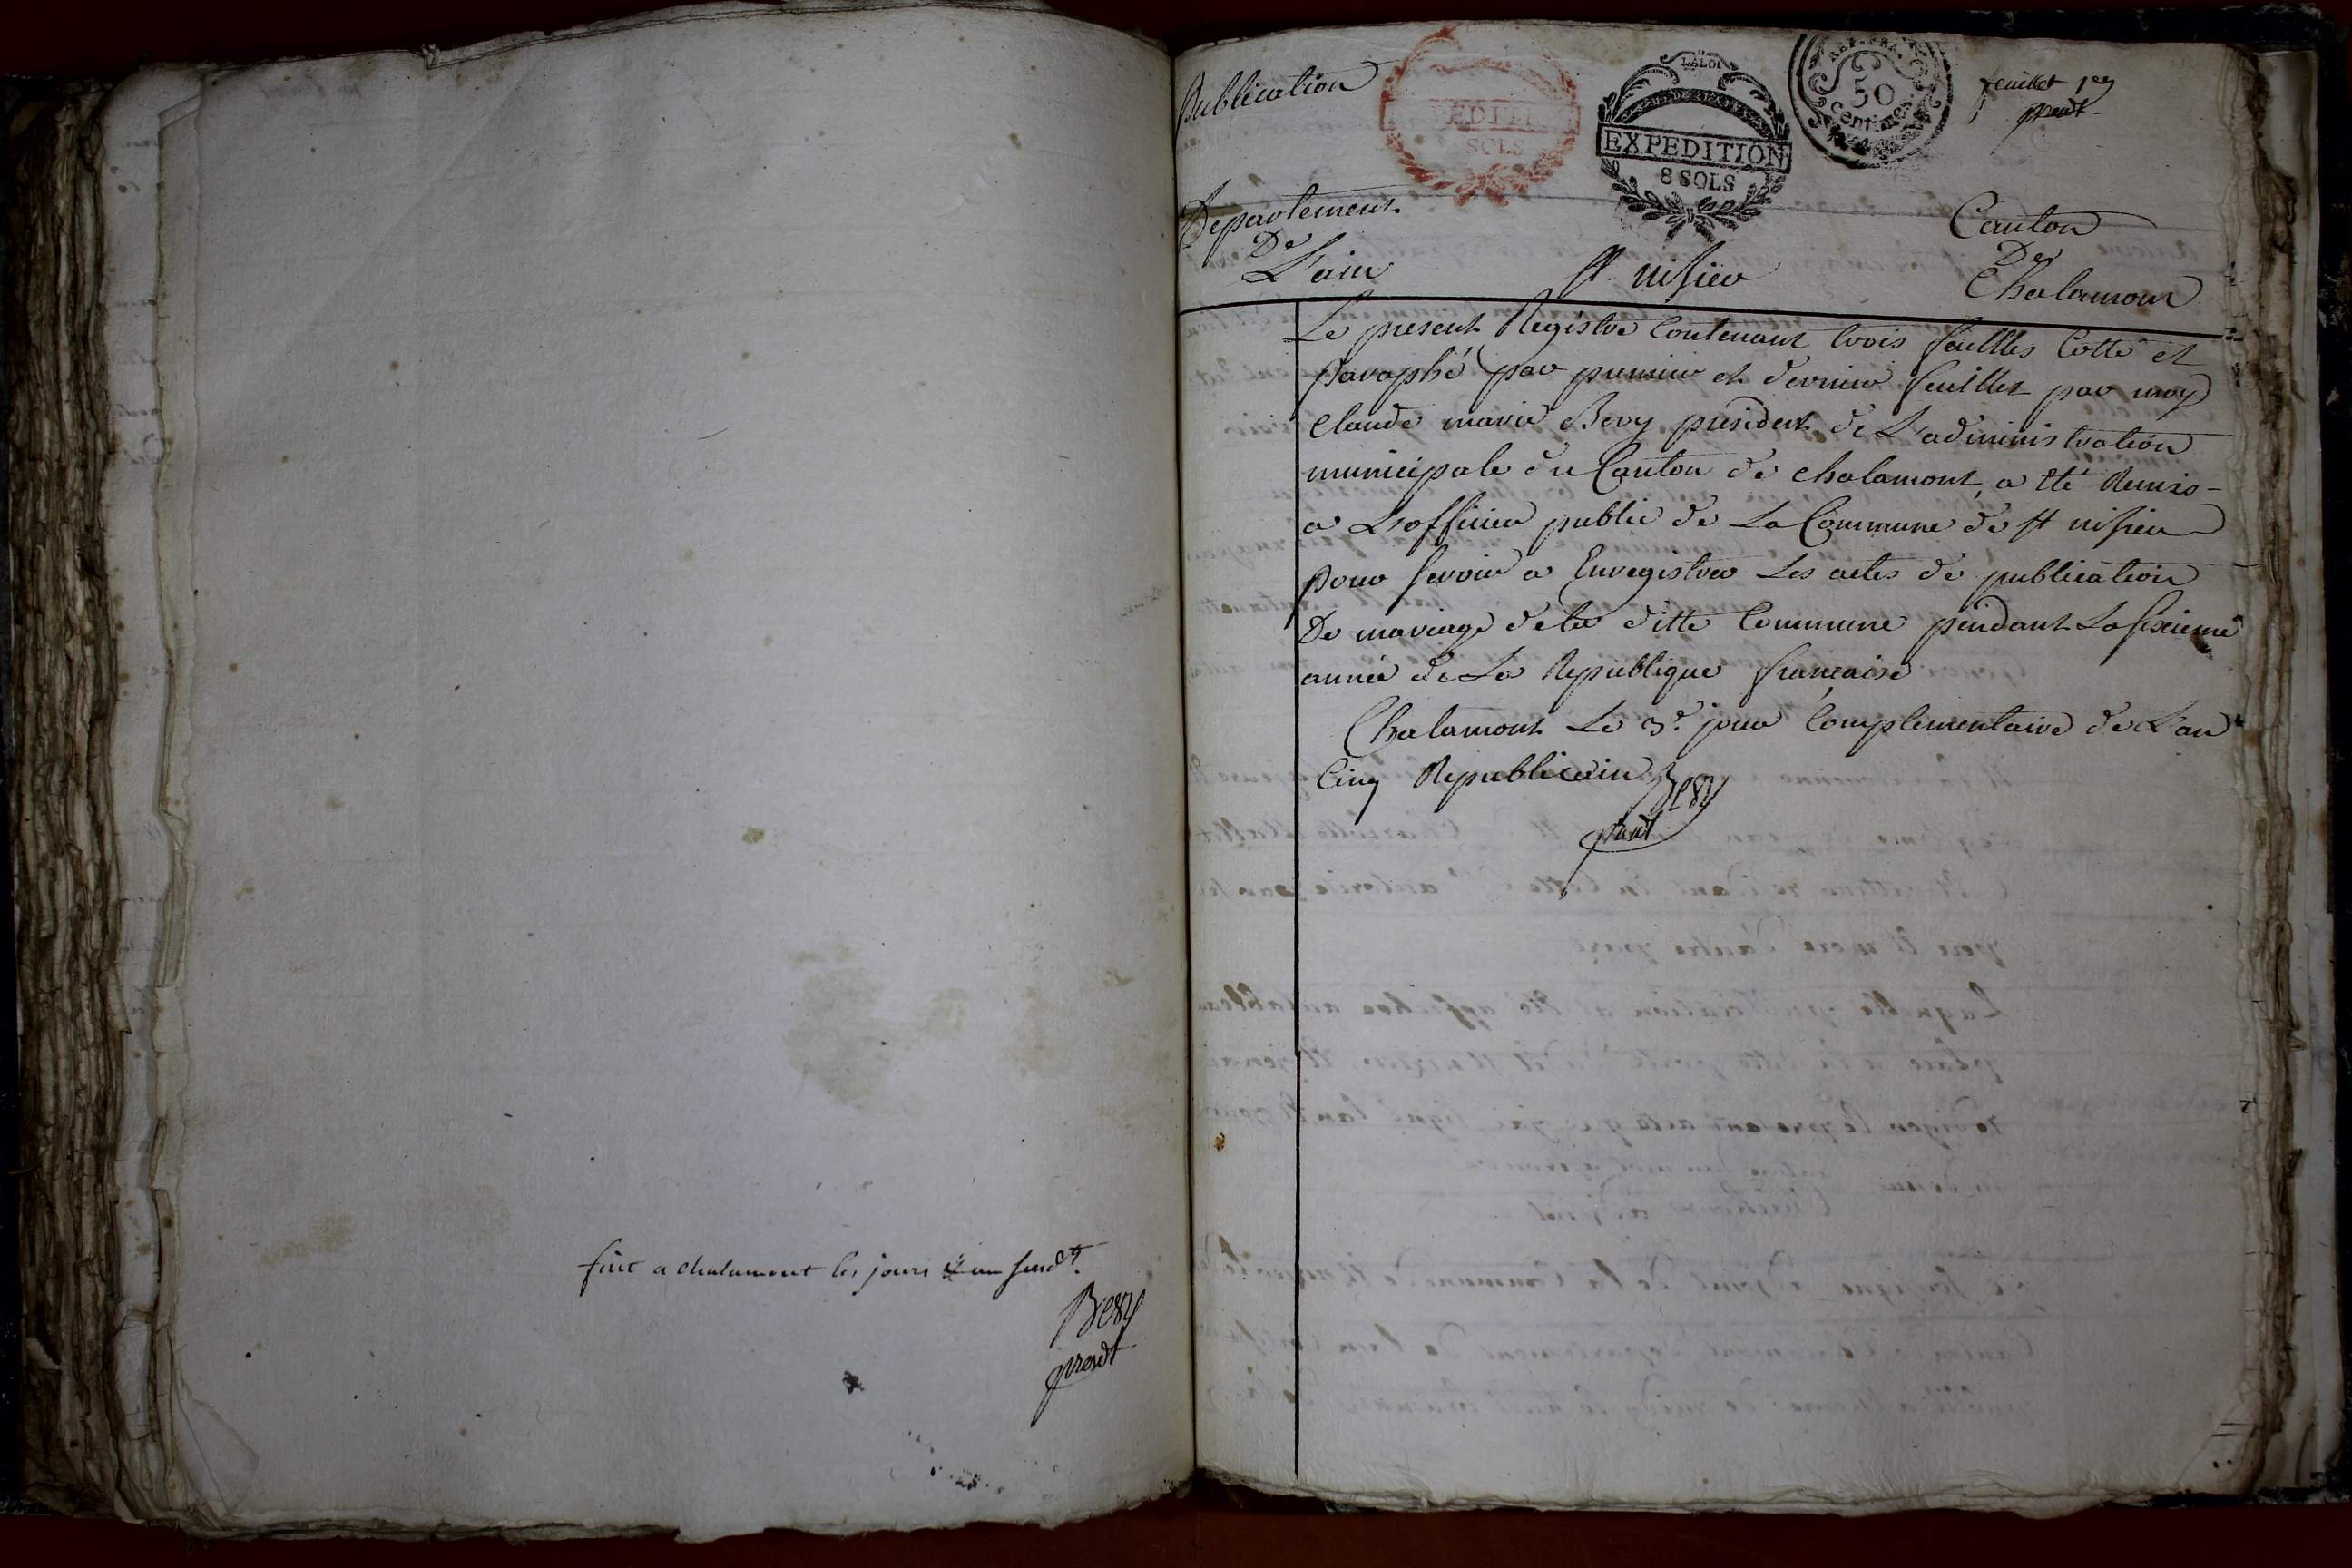 fait a chalamont les jours & an susdt.
Bery
presdt
Publication
EXPEDITION
8 SOLS
LA LOI
EXPEDITION
8 SOLS
REP. FRA
50
Centimes
feuillet 1er
presdt
Departement
De
L'ain
st. nisier
Canton
De
Chalamont
Le present Registre Contenant trois feuilles Cotté et
Paraphé par premier et dernier feuillet par moy
Claude marie Bery president de L'administration
municipale du Canton de chalamont, a été Remis
a L'officier public de La Commune de st nisier
pour servir a Enregistrer Les actes de publication
De mariage de la ditte Commune pendant La sixieme
année de La Republique francaise
Chalamont Le 3e. jour Complementaire de L'an
Cinq Republicain
Bery
presdt